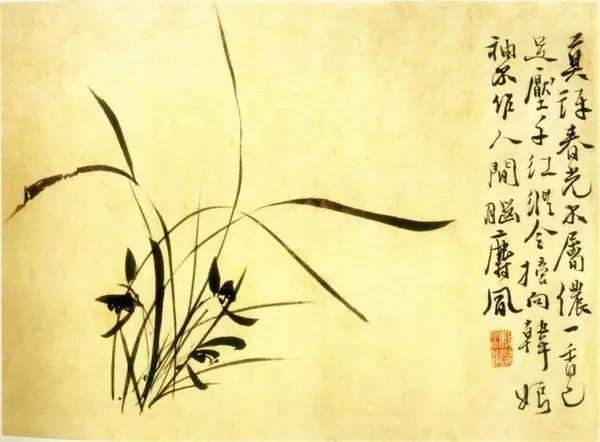 莫訝春光不屬儂一香已
足壓千紅總令摘向韓娘
袖不作人間腦麝風